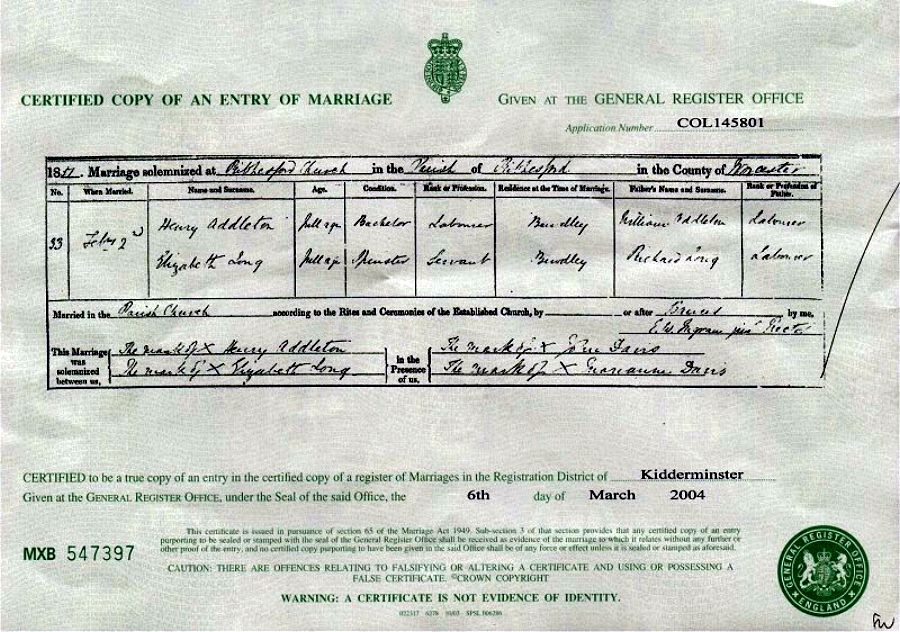 CERTIFIED COPY OF AN ENTRY OF MARRIAGE
GIVEN AT THE GENERAL REGISTER OFFICE
Application Number COL145801
Marriage solemnized at Ribbesford Church in the Parish of Ribbesford in the County of Worcester
No. When Married. Name and Surname. Age. Condition. Rank or Profession. Residence at the Time of Marriage. Father's Name and Surname. Rank or Profession of Father.
Henry Addleton full age Bachelor Labourer Bewdley William Addleton Labourer
33 Feby 2nd
Elizabeth Long full age Spinster Servant Bewdley Richard Long Labourer
Married in the Parish Church according to the Rites and Ceremonies of the Established Church, by or after Banns by me,
Rector
This Marriage was solemnized between us,
The mark of X Henry Addleton
The mark of X Elizabeth Long
in the Presence of us.
The mark of X John Davis
The mark of X Davis
CERTIFIED to be a true copy of an entry in the certified copy of a register of Marriages in the Registration District of Kidderminster
Given at the GENERAL REGISTER OFFICE, under the Seal of the said Office, the 6th day of March 2004
This certificate is issued in pursuance of section 65 of the Marriage Act 1949. Sub-section 3 of that section provides that any certified copy of an entry
purporting to be sealed or stamped with the seal of the General Register Office shall be received as evidence of the marriage to which it relates without any further or
other proof of the entry, and no certified copy purporting to have been given in the said Office shall be of any force or effect unless it is sealed or stamped as aforesaid.
MXB 547397
CAUTION: THERE ARE OFFENCES RELATING TO FALSIFYING OR ALTERING A CERTIFICATE AND USING OR POSSESSING A
FALSE CERTIFICATE. ©CROWN COPYRIGHT
WARNING: A CERTIFICATE IS NOT EVIDENCE OF IDENTITY.
GENERAL REGISTER OFFICE
ENGLAND